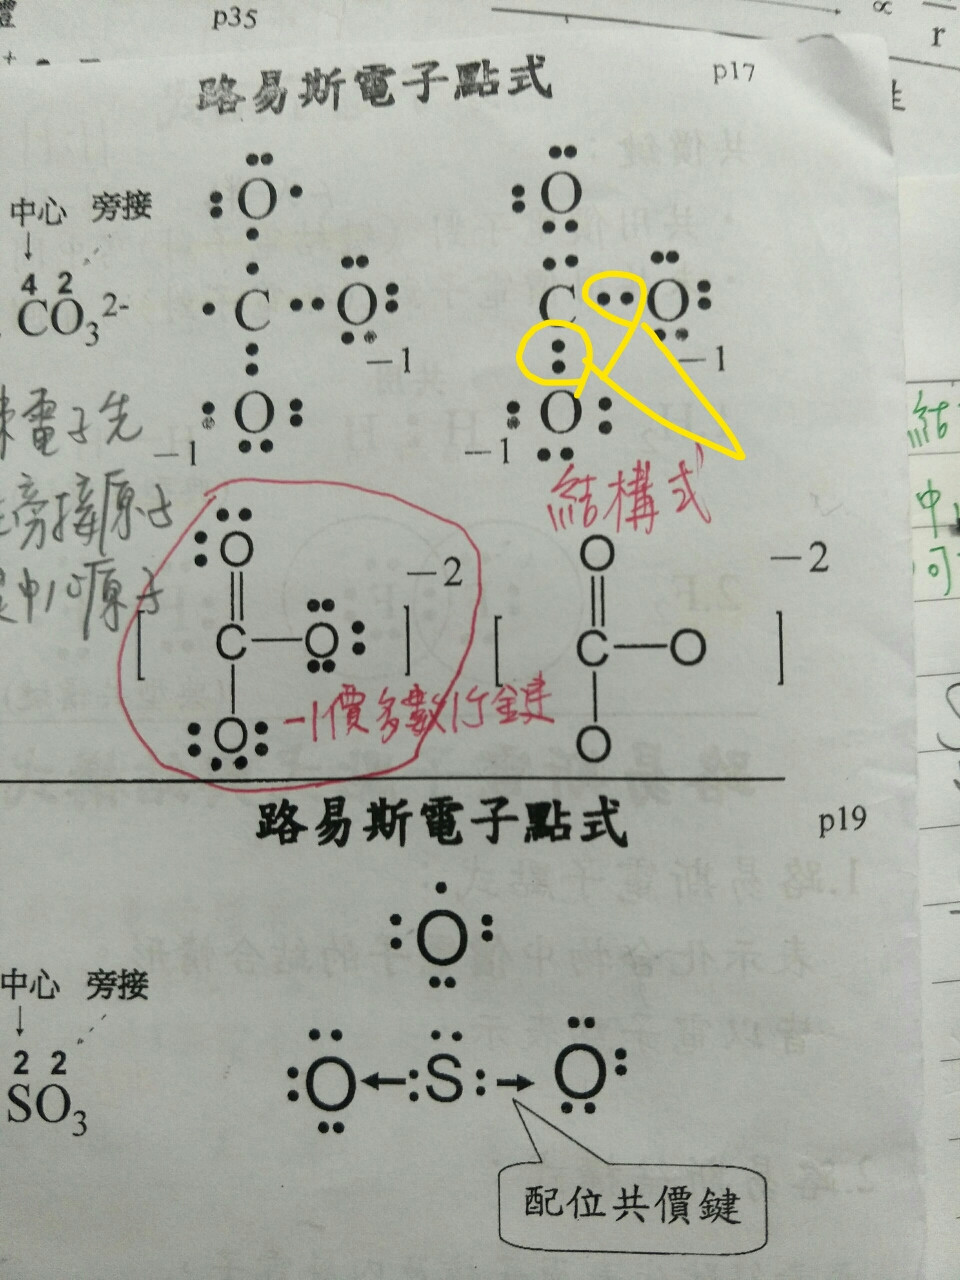 p35
r
路易斯電子點式 p17
中心 旁接
4 2
CO₃²⁻
O
C O
−1
O
−1
O
C O
−1
O
−1
電子先
旁接原子
中心原子
結構式
O
C O
O
−2
−1價多數行鍵
O
C O
O
−2
路易斯電子點式 p19
中心 旁接
2 2
SO₃
O
O S O
配位共價鍵
結
中